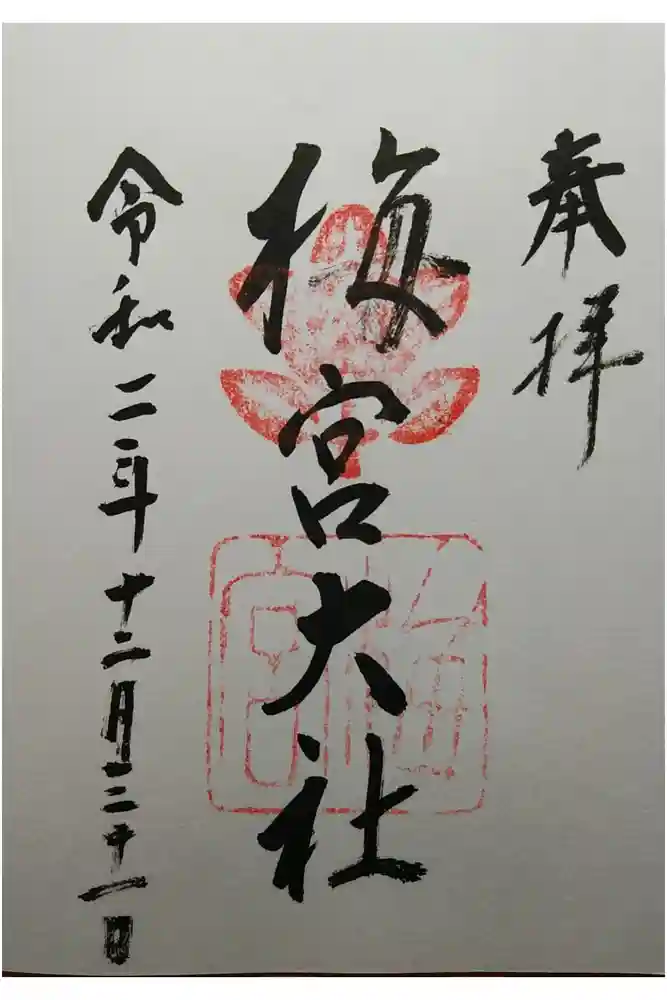 奉拝
梅宮大社
令和二年十二月三十一日